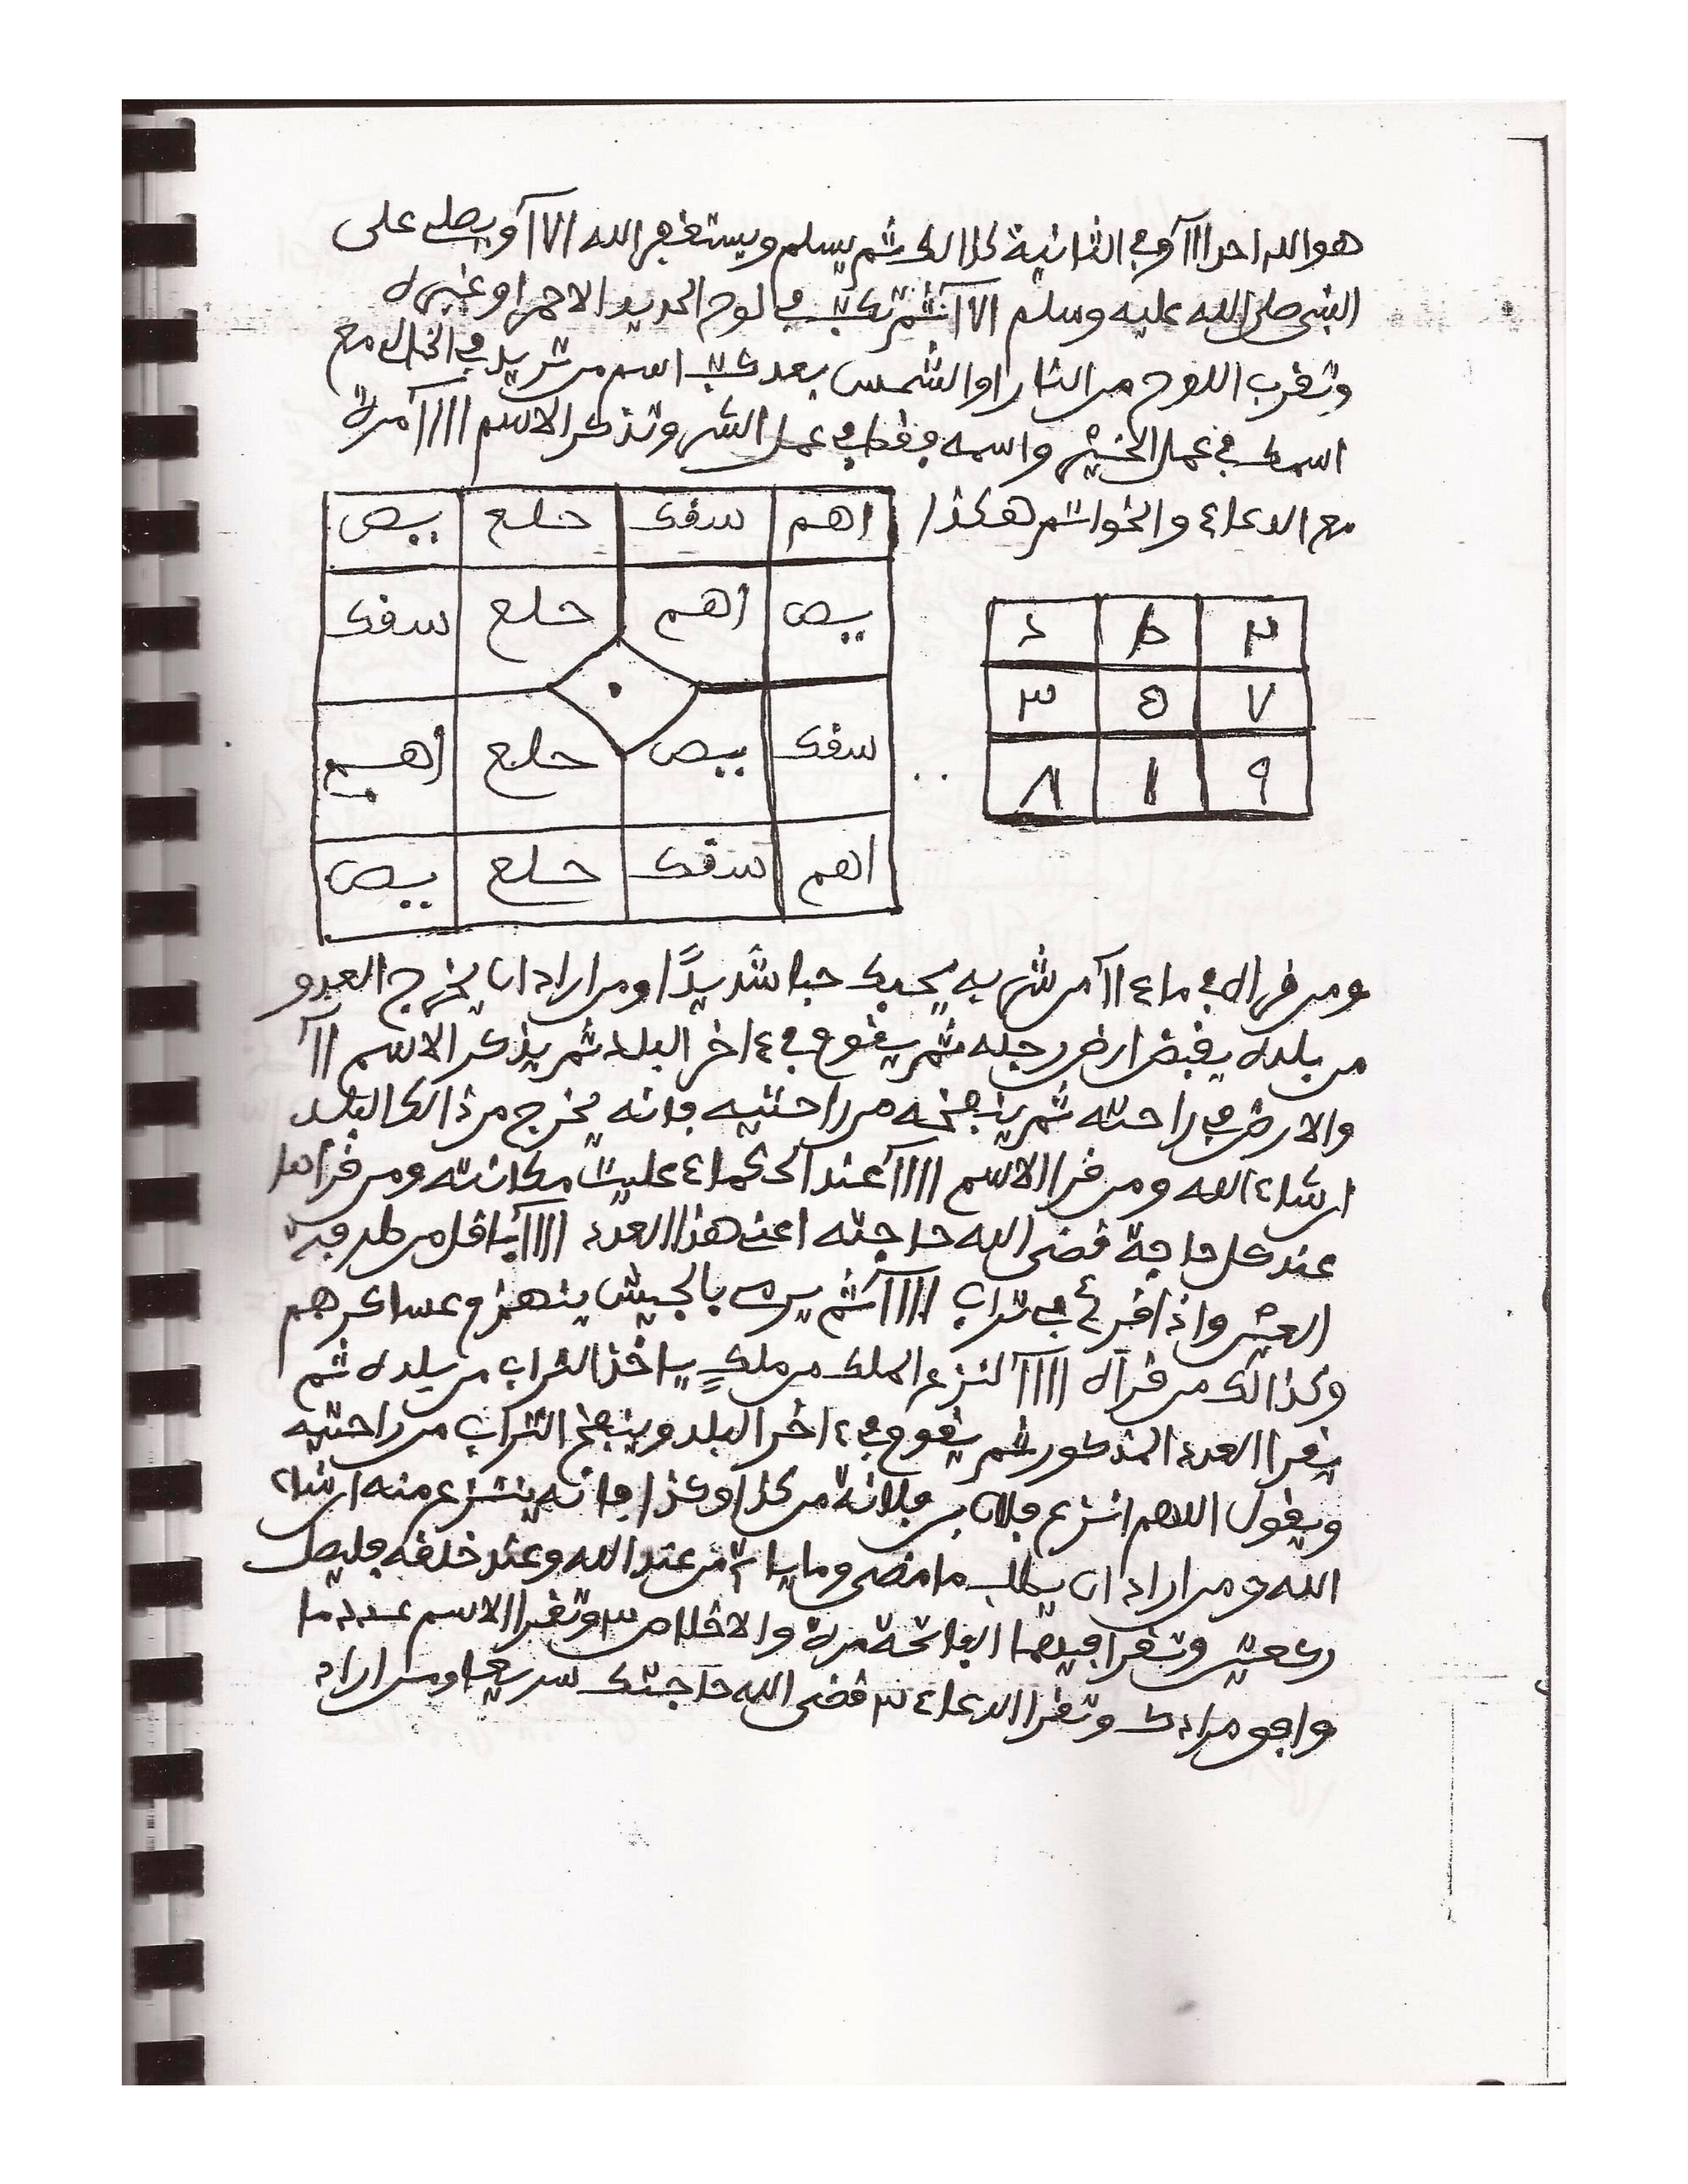 هو الله احد ااآ وفي الثانية كذالك ثم يسلم ويستغفر الله الاآ ويصلي على
النبي صلى الله عليه وسلم الاآ ثم تكتب في لوح الحديد الاحمر او غيره
وتقرب اللوح من النار او الشمس بعد كتب اسم من تريد في الخال مع
اسمك في عمل الخير واسمه فقط في عمل الشر وتذكر الاسم ااااآ مرة
مع الدعاء والخواتم هكذا
اهم سقك حلع يص
يص اهم حلع سقك
سقك يص حلع اهم
اهم سقك حلع يص
٢ ٦ ٤
٧ ٥ ٣
٩ ١ ٨
ومن قراه في ماء ااآ من شربه يحبك حبا شديدًا ومن اراد ان يخرج العدو
من بلده يقبض ارض رجله ثم يقوم في ءاخر البلد ثم يذكر الاسم ااآ
والارض في راحته ثم ينفخه من راحتيه فانه يخرج من ذالك البلد
ان شاء الله ومن قرا الاسم ااااآ عند الحكماء عليت مكانته ومن قراها
عند كل حاجة قضى الله حاجته اعني هذا العدد ااااآ باقل من طرفة
العين واذا قرئ في تراب ااااآ ثم يرمى بالجيش ينهزم عساكرهم
وكذالك من قراه ااااآ لنزع الملك من ملكٍ ياخذ التراب من بلده ثم
يقرا العدد المذكور ثم يقوم في ءاخر البلد وينفخ التراب من راحتيه
ويقول اللهم انزع فلان بن فلانة من كذا وكذا فانه ينتزع منه ان شاء
الله ومن اراد ان يطلب ما مضى وما ياتي من عند الله وعند خلقه فليصل
ركعتين وتقرا فيهما الفاتحة مرة والاخلاص ٣ وتقرا الاسم عدد ما
وافق مرادك وتقرا الدعاء ٣ قضى الله حاجتك سريعا ومن اراد